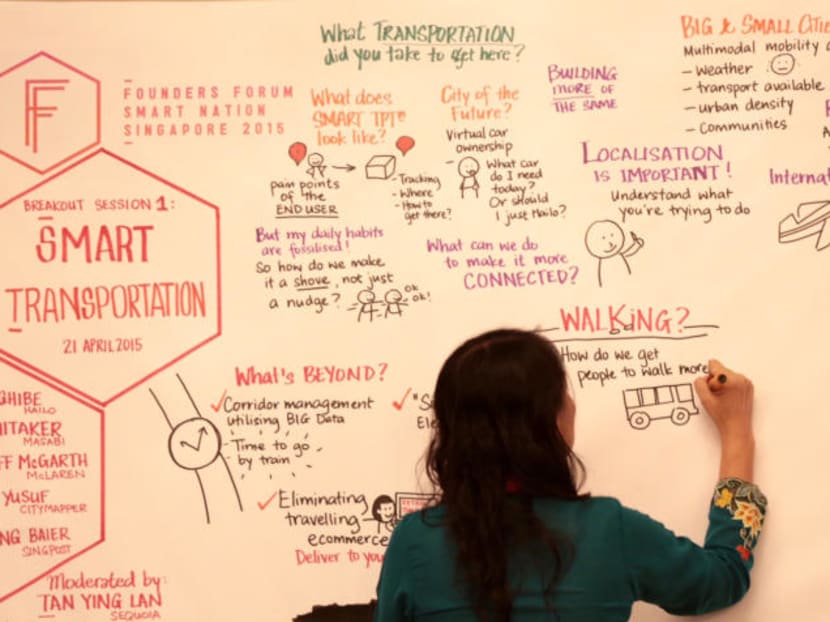 What TRANSPORTATION
did you take to get here?
FF
FOUNDERS FORUM
SMART NATION
SINGAPORE 2015
BREAKOUT SESSION 1:
SMART
TRANSPORTATION
21 APRIL 2015
HAILO
MASABI
McGARTH
McLAREN
YUSUF
CITYMAPPER
BAIER
SINGPOST
Moderated by:
TAN YING LAN
SEQUOIA
What does
SMART TPT
look like?
pain points
of the
END USER
- Tracking
- Where
- How to
get there?
But my daily habits
are fossilised!
So how do we make
it a shove, not just
a nudge?
ok
ok!
City of the
Future?
Virtual car
ownership
What car
do I need
today?
Or should
I just Hailo?
What can we do
to make it more
CONNECTED?
BUILDING
MORE OF
THE SAME
BIG & SMALL
Multimodal mobility
- weather
- transport available
- urban density
- Communities
LOCALISATION
IS IMPORTANT!
Understand what
you're trying to do
What's BEYOND?
Corridor management
utilising BIG Data
- Time to go
- by train
Eliminating
travelling
ecommerce
Deliver to
WALKING?
How do we get
people to walk more